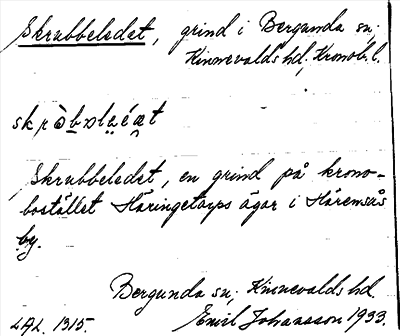 Skrubbeledet, grind i Bergunda sn,
Kinnevalds hd, Kronob. l.
Skrubbeledet, en grind på krono-
bostället Häringetorps ägor i
by.
Bergunda sn, Kinnevalds hd.
LAL. 1315. Emil Johansson 1933.